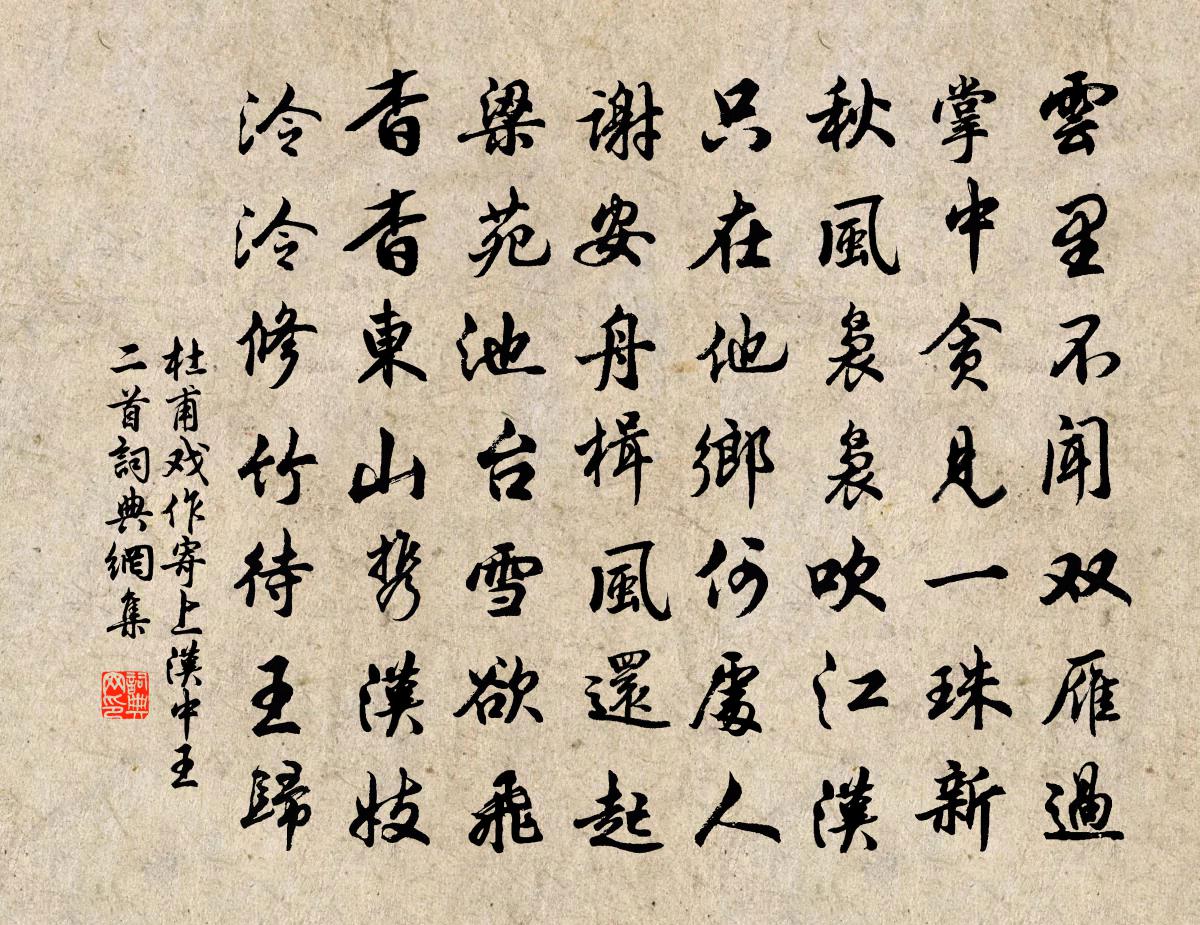 雲里不闻双雁過
掌中贪見一珠新
秋風袅袅吹江漢
只在他鄉何處人
謝安舟楫風還起
梁苑池台雪欲飛
杳杳東山携漢妓
泠泠修竹待王歸
杜甫戏作寄上漢中王
二首詞典網集
詞典网印